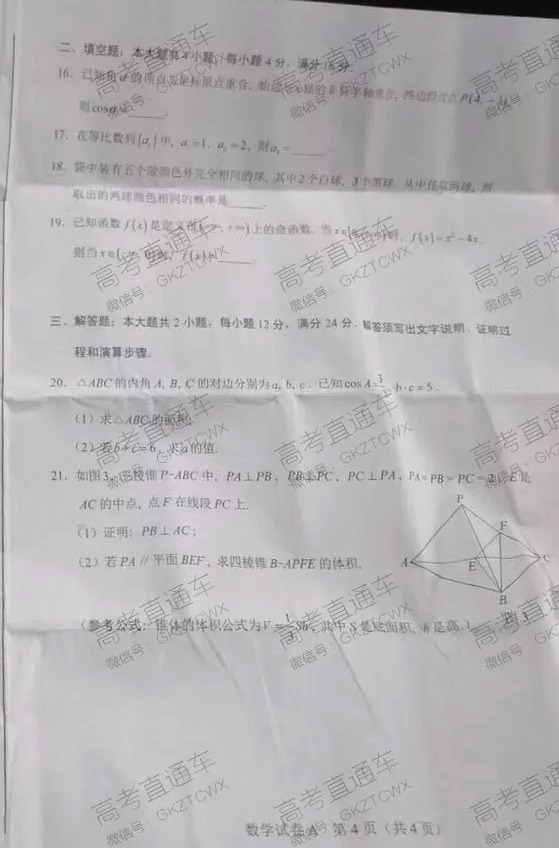 二、填空题：本大题共4小题，每小题4分，满分16分．
16．已知角α的顶点与坐标原点重合，始边与x轴的非负半轴重合，终边经过点P(4，
则cosα=______．
17．在等比数列{aₙ}中，a₁=1，a₂=2，则
18．袋中装有五个除颜色外完全相同的球，其中2个白球，3个黑球，从中任取两球，则
取出的两球颜色相同的概率是______．
19．已知函数f(x)是定义在(-∞，+∞)上的奇函数，当x∈ 时，f(x)=x²-4x
则当x∈ 时，f(x)=______．
三、解答题：本大题共2小题，每小题12分，满分24分．解答须写出文字说明、证明过
程和演算步骤．
20．△ABC的内角A, B, C的对边分别为a, b, c．已知cos A= b·c=5．
（1）求△ABC的面积；
（2）若b+c=6，求a的值．
21．如图3，三棱锥P-ABC中，PA⊥PB，PB⊥PC，PC⊥PA，PA=PB=PC=2，E是
AC的中点，点F在线段PC上．
（1）证明：PB⊥AC；
（2）若PA∥平面BEF，求四棱锥B-APFE的体积．
P
F
A
E
C
B
图3
（参考公式：锥体的体积公式为V=1/3Sh，其中S是底面积，h是高．）
数学试卷A 第4页（共4页）
高考直通车
微信号：GKZTCWX